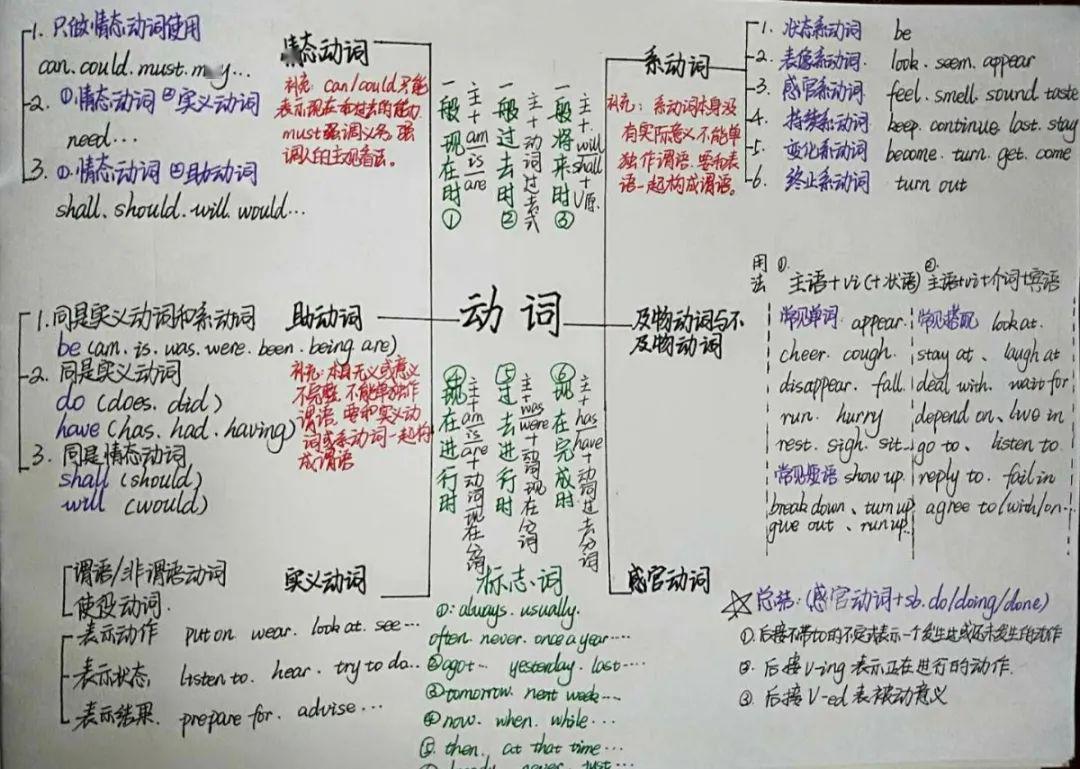 1. 只做情态动词使用
can. could. must. may...
2. ①情态动词 ②实义动词
need...
3. ①情态动词 ②助动词
shall. should. will. would...
情态动词
补充: can/could只能
表示现在和过去的能力
must强调义务, 强
调人的主观看法。
一般现在时①
主+am/is/are
一般过去时②
主+动词过去式
一般将来时③
主+will/shall+V原
系动词
补充: 系动词本身没
有实际意义, 不能单
独作谓语. 要和表
语一起构成谓语。
1. 状态系动词 be
2. 表像系动词 look. seem. appear
3. 感官系动词 feel. smell. sound taste
4. 持续系动词 keep. continue. last. stay
5. 变化系动词 become. turn. get. come
6. 终止系动词 turn out
动词
1. 同是实义动词和系动词
be (am. is. was. were. been. being are)
2. 同是实义动词
do (does. did)
have (has. had. having)
3. 同是情态动词
shall (should)
will (would)
助动词
补充: 本身无义或意义
不完整, 不能单独作
谓语, 要和实义动
词或系动词一起构
成谓语
④现在进行时
主+am/is/are+动词现在分词
⑤过去进行时
主+was/were+动词现在分词
⑥现在完成时
主+has/have+动词过去分词
及物动词与不
及物动词
用法
①. 主语+vi (+状语)
②. 主语+vi+介词+宾语
常见单词 appear.
cheer. cough.
disappear. fall.
run. hurry
rest. sigh. sit..
常见短语 show up.
break down、turn up
give out、run up.
常见搭配 look at.
stay at、laugh at
deal with. wait for
depend on、live in
go to、listen to
reply to. fail in
agree to/with/on...
实义动词
谓语/非谓语动词
使役动词.
表示动作 put on. wear. look at. see...
表示状态 listen to. hear. try to do..
表示结果. prepare for. advise...
标志词
①: always. usually.
often. never. once a year....
②ago... yesterday. last....
③tomorrow. next week....
④now. when. while...
⑤. then. at that time...
never. just...
感官动词
☆总结: (感官动词+sb. do/doing/done)
①. 后接不带to的不定式表示一个发生过或还未发生的动作
②. 后接V-ing 表示正在进行的动作.
③. 后接V-ed 表被动意义